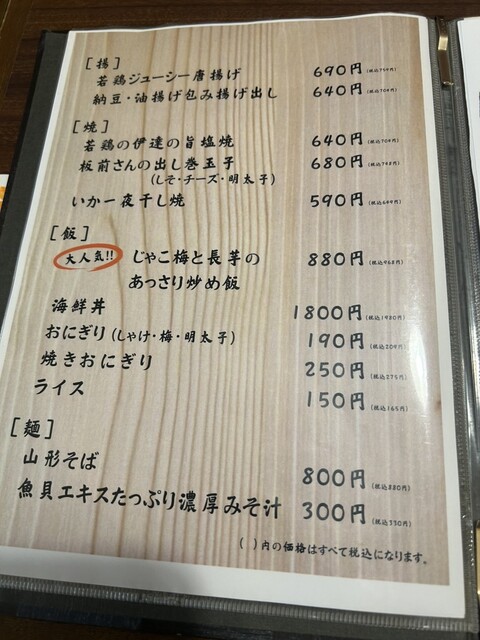 [揚]
若鶏ジューシー唐揚げ 690円(税込759円)
納豆・油揚げ包み揚げ出し 640円(税込704円)
[焼]
若鶏の伊達の旨塩焼 640円(税込704円)
板前さんの出し巻玉子 680円(税込748円)
(しそ・チーズ・明太子)
いか一夜干し焼 590円(税込649円)
[飯]
大人気!! じゃこ梅と長芋の 880円(税込968円)
あっさり炒め飯
海鮮丼 1800円(税込1980円)
おにぎり(しゃけ・梅・明太子) 190円(税込209円)
焼きおにぎり 250円(税込275円)
ライス 150円(税込165円)
[麺]
山形そば 800円(税込880円)
魚貝エキスたっぷり濃厚みそ汁 300円(税込330円)
( )内の価格はすべて税込になります。